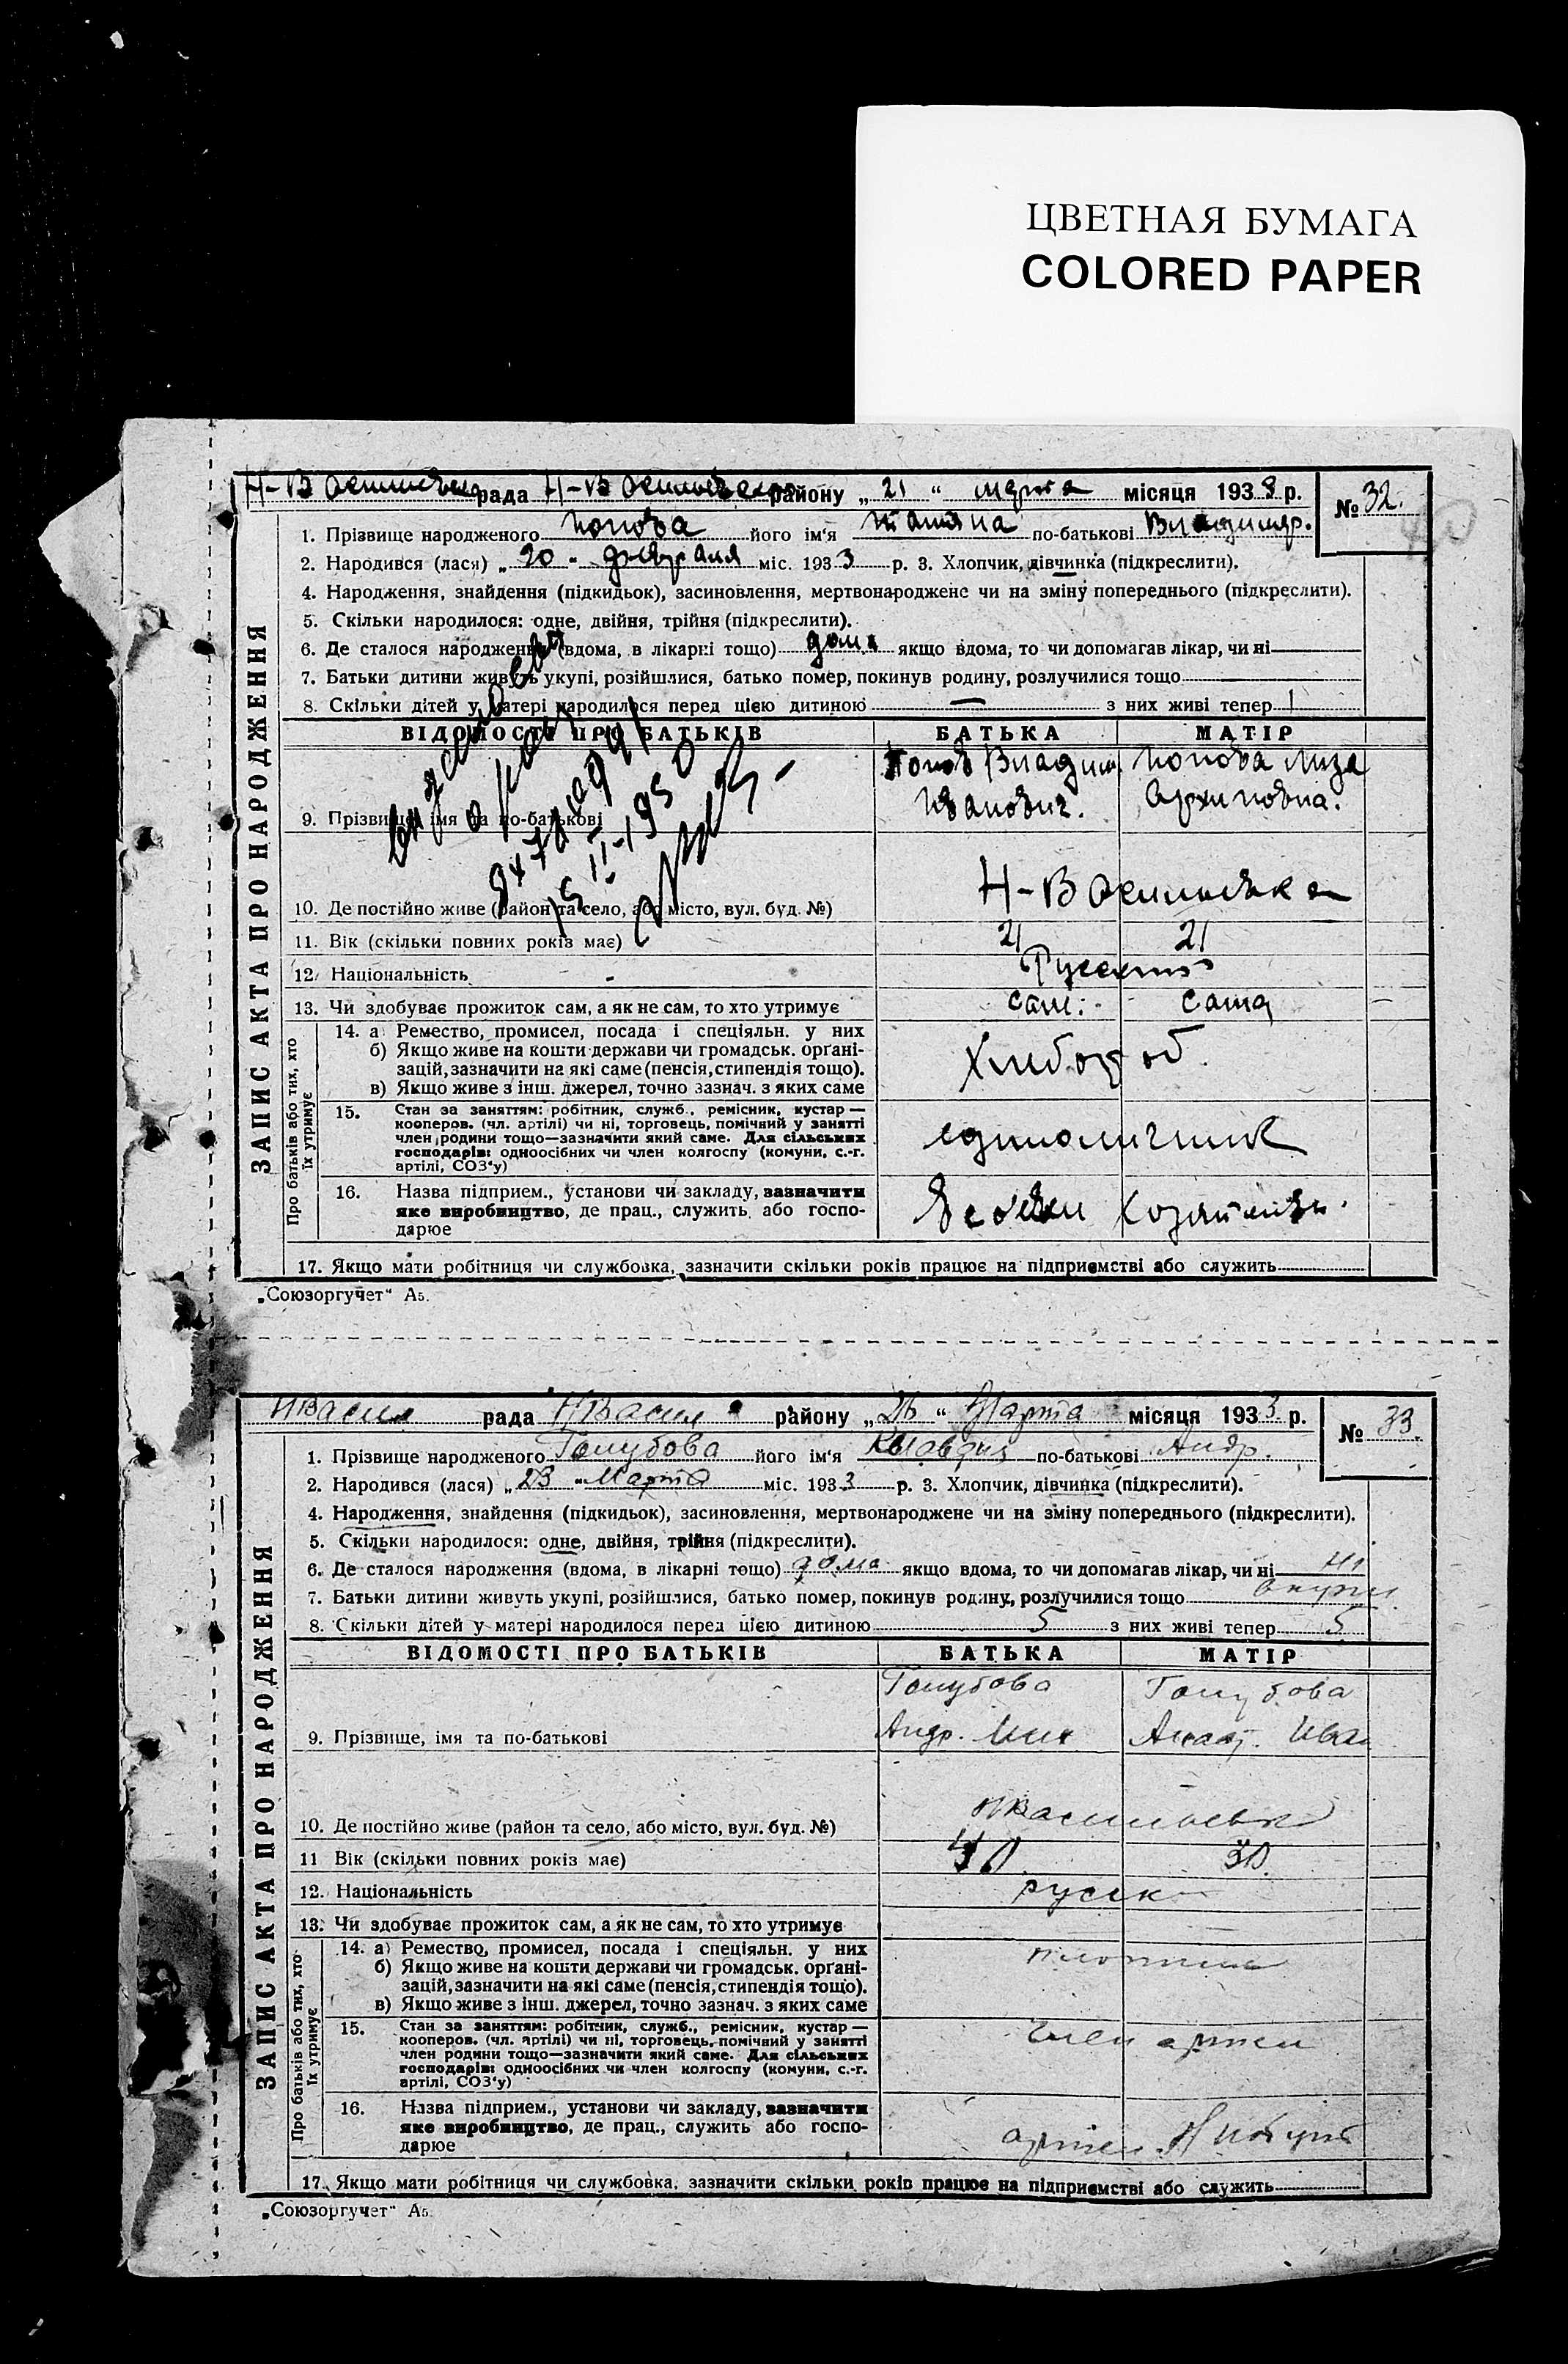 ЦВЕТНАЯ БУМАГА
COLORED PAPER
рада Н-Васильевска району „21“ марта місяця 1933 р. № 32.
1. Прізвище народженого Попова його ім'я Татяна по-батькові Владимір.
2. Народився (лася) „20“ февраля міс. 1933 р. 3. Хлопчик, дівчинка (підкреслити).
4. Народження, знайдення (підкидьок), засиновлення, мертвонароджене чи на зміну попереднього (підкреслити).
5. Скільки народилося: одне, двійня, трійня (підкреслити).
6. Де сталося народження (вдома, в лікарні тощо) дома якщо вдома, то чи допомагав лікар, чи ні
7. Батьки дитини живуть укупі, розійшлися, батько помер, покинув родину, розлучилися тощо
8. Скільки дітей у матері народилося перед цією дитиною — з них живі тепер 1
ЗАПИС АКТА ПРО НАРОДЖЕННЯ
ВІДОМОСТІ ПРО БАТЬКІВ БАТЬКА МАТІР
Попов Владим. Попова Лиза
9. Прізвище, імя та по-батькові Иванович. Архиповна.
10. Де постійно живе (район та село, або місто, вул. буд. №) Н-Васильевка
11. Вік (скільки повних років має) 21 21
12. Національність Русский
13. Чи здобуває прожиток сам, а як не сам, то хто утримує сам. сама
Про батьків або тих, хто їх утримує
14. а) Ремество, промисел, посада і спеціяльн. у них
б) Якщо живе на кошти держави чи громадськ. органі-
зацій, зазначити на які саме (пенсія, стипендія тощо).
в) Якщо живе з інш. джерел, точно зазнач. з яких саме
Хлибороб
15. Стан за заняттям: робітник, служб., ремісник, кустар —
кооперов. (чл. артілі) чи ні, торговець, помічний у занятті
член родини тощо—зазначити який саме. Для сільських
господарів: одноосібних чи член колгоспу (комуни, с.-г.
артілі, СОЗ'у)
единоличник
16. Назва підприєм., установи чи закладу, зазначити
яке виробництво, де прац., служить або госпо-
дарює
17. Якщо мати робітниця чи службовка, зазначити скільки років працює на підприємстві або служить
„Союзоргучет“ А5.
НВасил рада НВасил району „26“ Марта місяця 1933 р. № 33.
1. Прізвище народженого Голубова його ім'я Клавдия по-батькові Андр.
2. Народився (лася) „23“ Марта міс. 1933 р. 3. Хлопчик, дівчинка (підкреслити).
4. Народження, знайдення (підкидьок), засиновлення, мертвонароджене чи на зміну попереднього (підкреслити).
5. Скільки народилося: одне, двійня, трійня (підкреслити).
6. Де сталося народження (вдома, в лікарні тощо) дома якщо вдома, то чи допомагав лікар, чи ні ні
7. Батьки дитини живуть укупі, розійшлися, батько помер, покинув родину, розлучилися тощо вкупи
8. Скільки дітей у матері народилося перед цією дитиною 5 з них живі тепер 5
ЗАПИС АКТА ПРО НАРОДЖЕННЯ
ВІДОМОСТІ ПРО БАТЬКІВ БАТЬКА МАТІР
Голубова Голубова
9. Прізвище, імя та по-батькові Андр. Иван
10. Де постійно живе (район та село, або місто, вул. буд. №) НВасильевк
11 Вік (скільки повних років має) 40 30.
12. Національність русск
13. Чи здобуває прожиток сам, а як не сам, то хто утримує
Про батьків або тих, хто їх утримує
14. а) Ремество, промисел, посада і спеціяльн. у них
б) Якщо живе на кошти держави чи громадськ. органі-
зацій, зазначити на які саме (пенсія, стипендія тощо).
в) Якщо живе з інш. джерел, точно зазнач. з яких саме
плотник
15. Стан за заняттям: робітник, служб., ремісник, кустар —
кооперов. (чл. артілі) чи ні, торговець, помічний у занятті
член родини тощо—зазначити який саме. Для сільських
господарів: одноосібних чи член колгоспу (комуни, с.-г.
артілі, СОЗ'у)
член артели
16. Назва підприєм., установи чи закладу, зазначити
яке виробництво, де прац., служить або госпо-
дарює
артель
17. Якщо мати робітниця чи службовка, зазначити скільки років працює на підприємстві або служить
„Союзоргучет“ А5.